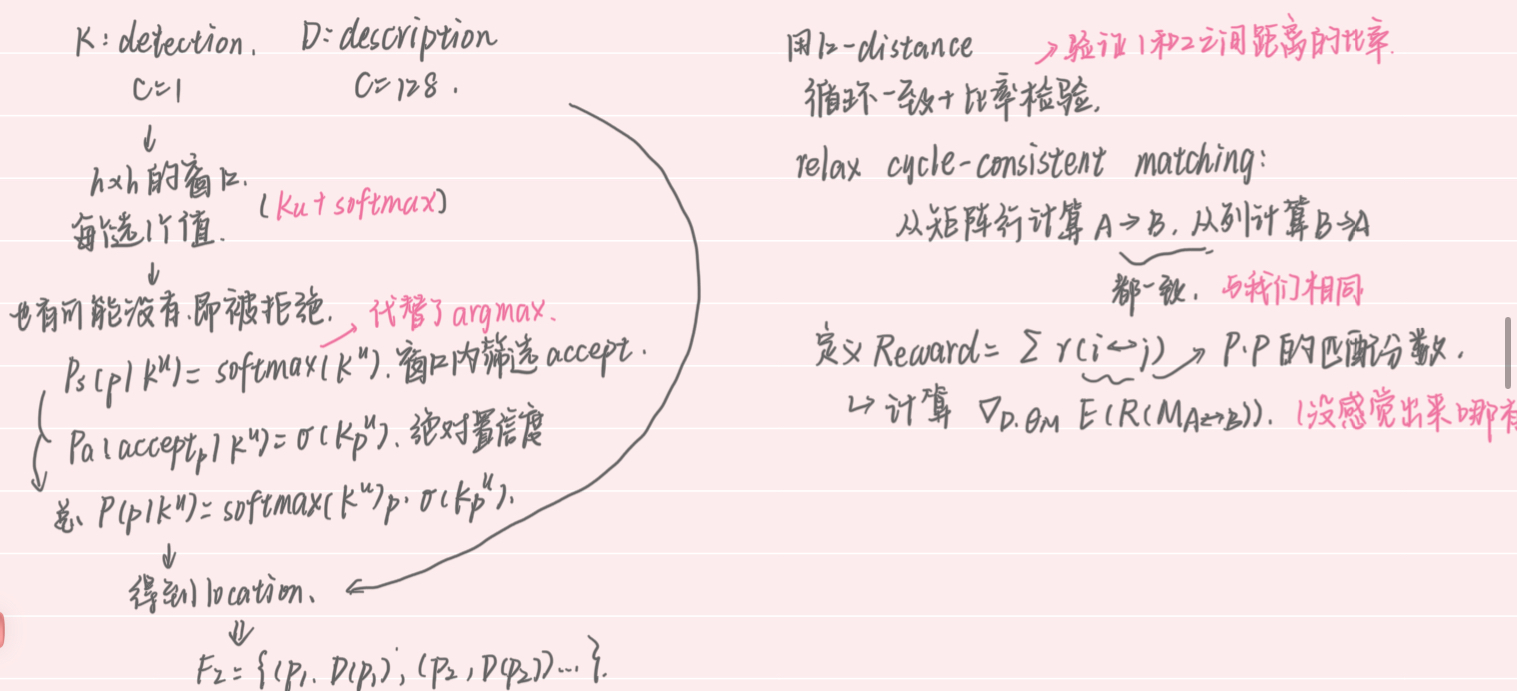 K: detection. D: description
C=1 C=128.
↓
h×h的窗口.
每个选1个值. (Ku+softmax)
↓
也有可能没有.即被拒绝. 代替了argmax.
Ps(p|kᵘ)=softmax(kᵘ).窗口内筛选accept.
Pa(acceptₚ|kᵘ)=σ(kₚᵘ).绝对置信度
总、P(p|kᵘ)=softmax(kᵘ)p·σ(kₚᵘ).
↓
得到location、
⇓
F₂={(p₁. D(p₁), (p₂, D(p₂))...}.
用l2-distance →验证1和2之间距离的比率.
循环一致+比率检验.
relax cycle-consistent matching:
从矩阵行计算A→B.从列计算B→A
都一致. 与我们相同
定义Reward=Σr(i↔j)→P.P的匹配分数.
↳计算 ∇D.θM E(R(MA↔B)). (没感觉出来哪有